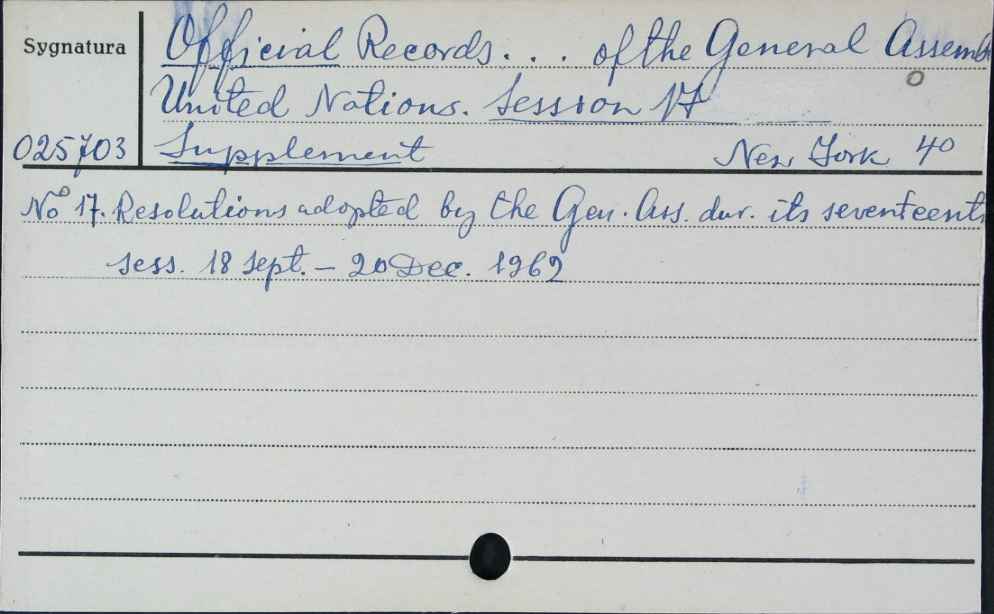 Sygnatura
Official Records . . . of the General Assemb
United Nations. Session 17
025703 Supplement New York 4°
No 17. Resolutions adopted by the Gen. Ass. dur. its seventeenth
sess. 18 sept. – 20 Dec. 1962